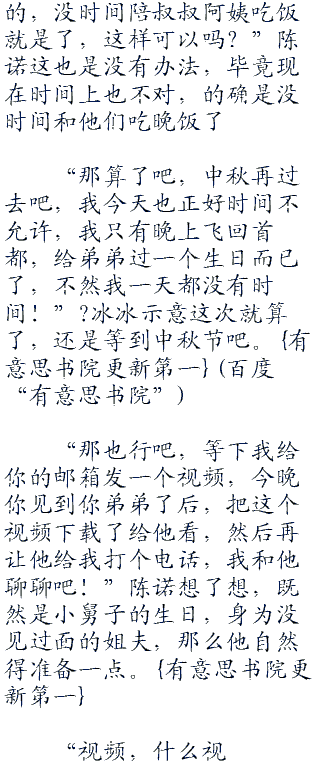 的，没时间陪叔叔阿姨吃饭
就是了，这样可以吗？”陈
诺这也是没有办法，毕竟现
在时间上也不对，的确是没
时间和他们吃晚饭了
“那算了吧，中秋再过
去吧，我今天也正好时间不
允许，我只有晚上飞回首
都，给弟弟过一个生日而已
了，不然我一天都没有时
间！”?冰冰示意这次就算
了，还是等到中秋节吧。{有
意思书院更新第一}(百度
“有意思书院”)
“那也行吧，等下我给
你的邮箱发一个视频，今晚
你见到你弟弟了后，把这个
视频下载了给他看，然后再
让他给我打个电话，我和他
聊聊吧！”陈诺想了想，既
然是小舅子的生日，身为没
见过面的姐夫，那么他自然
得准备一点。{有意思书院更
新第一}
“视频，什么视